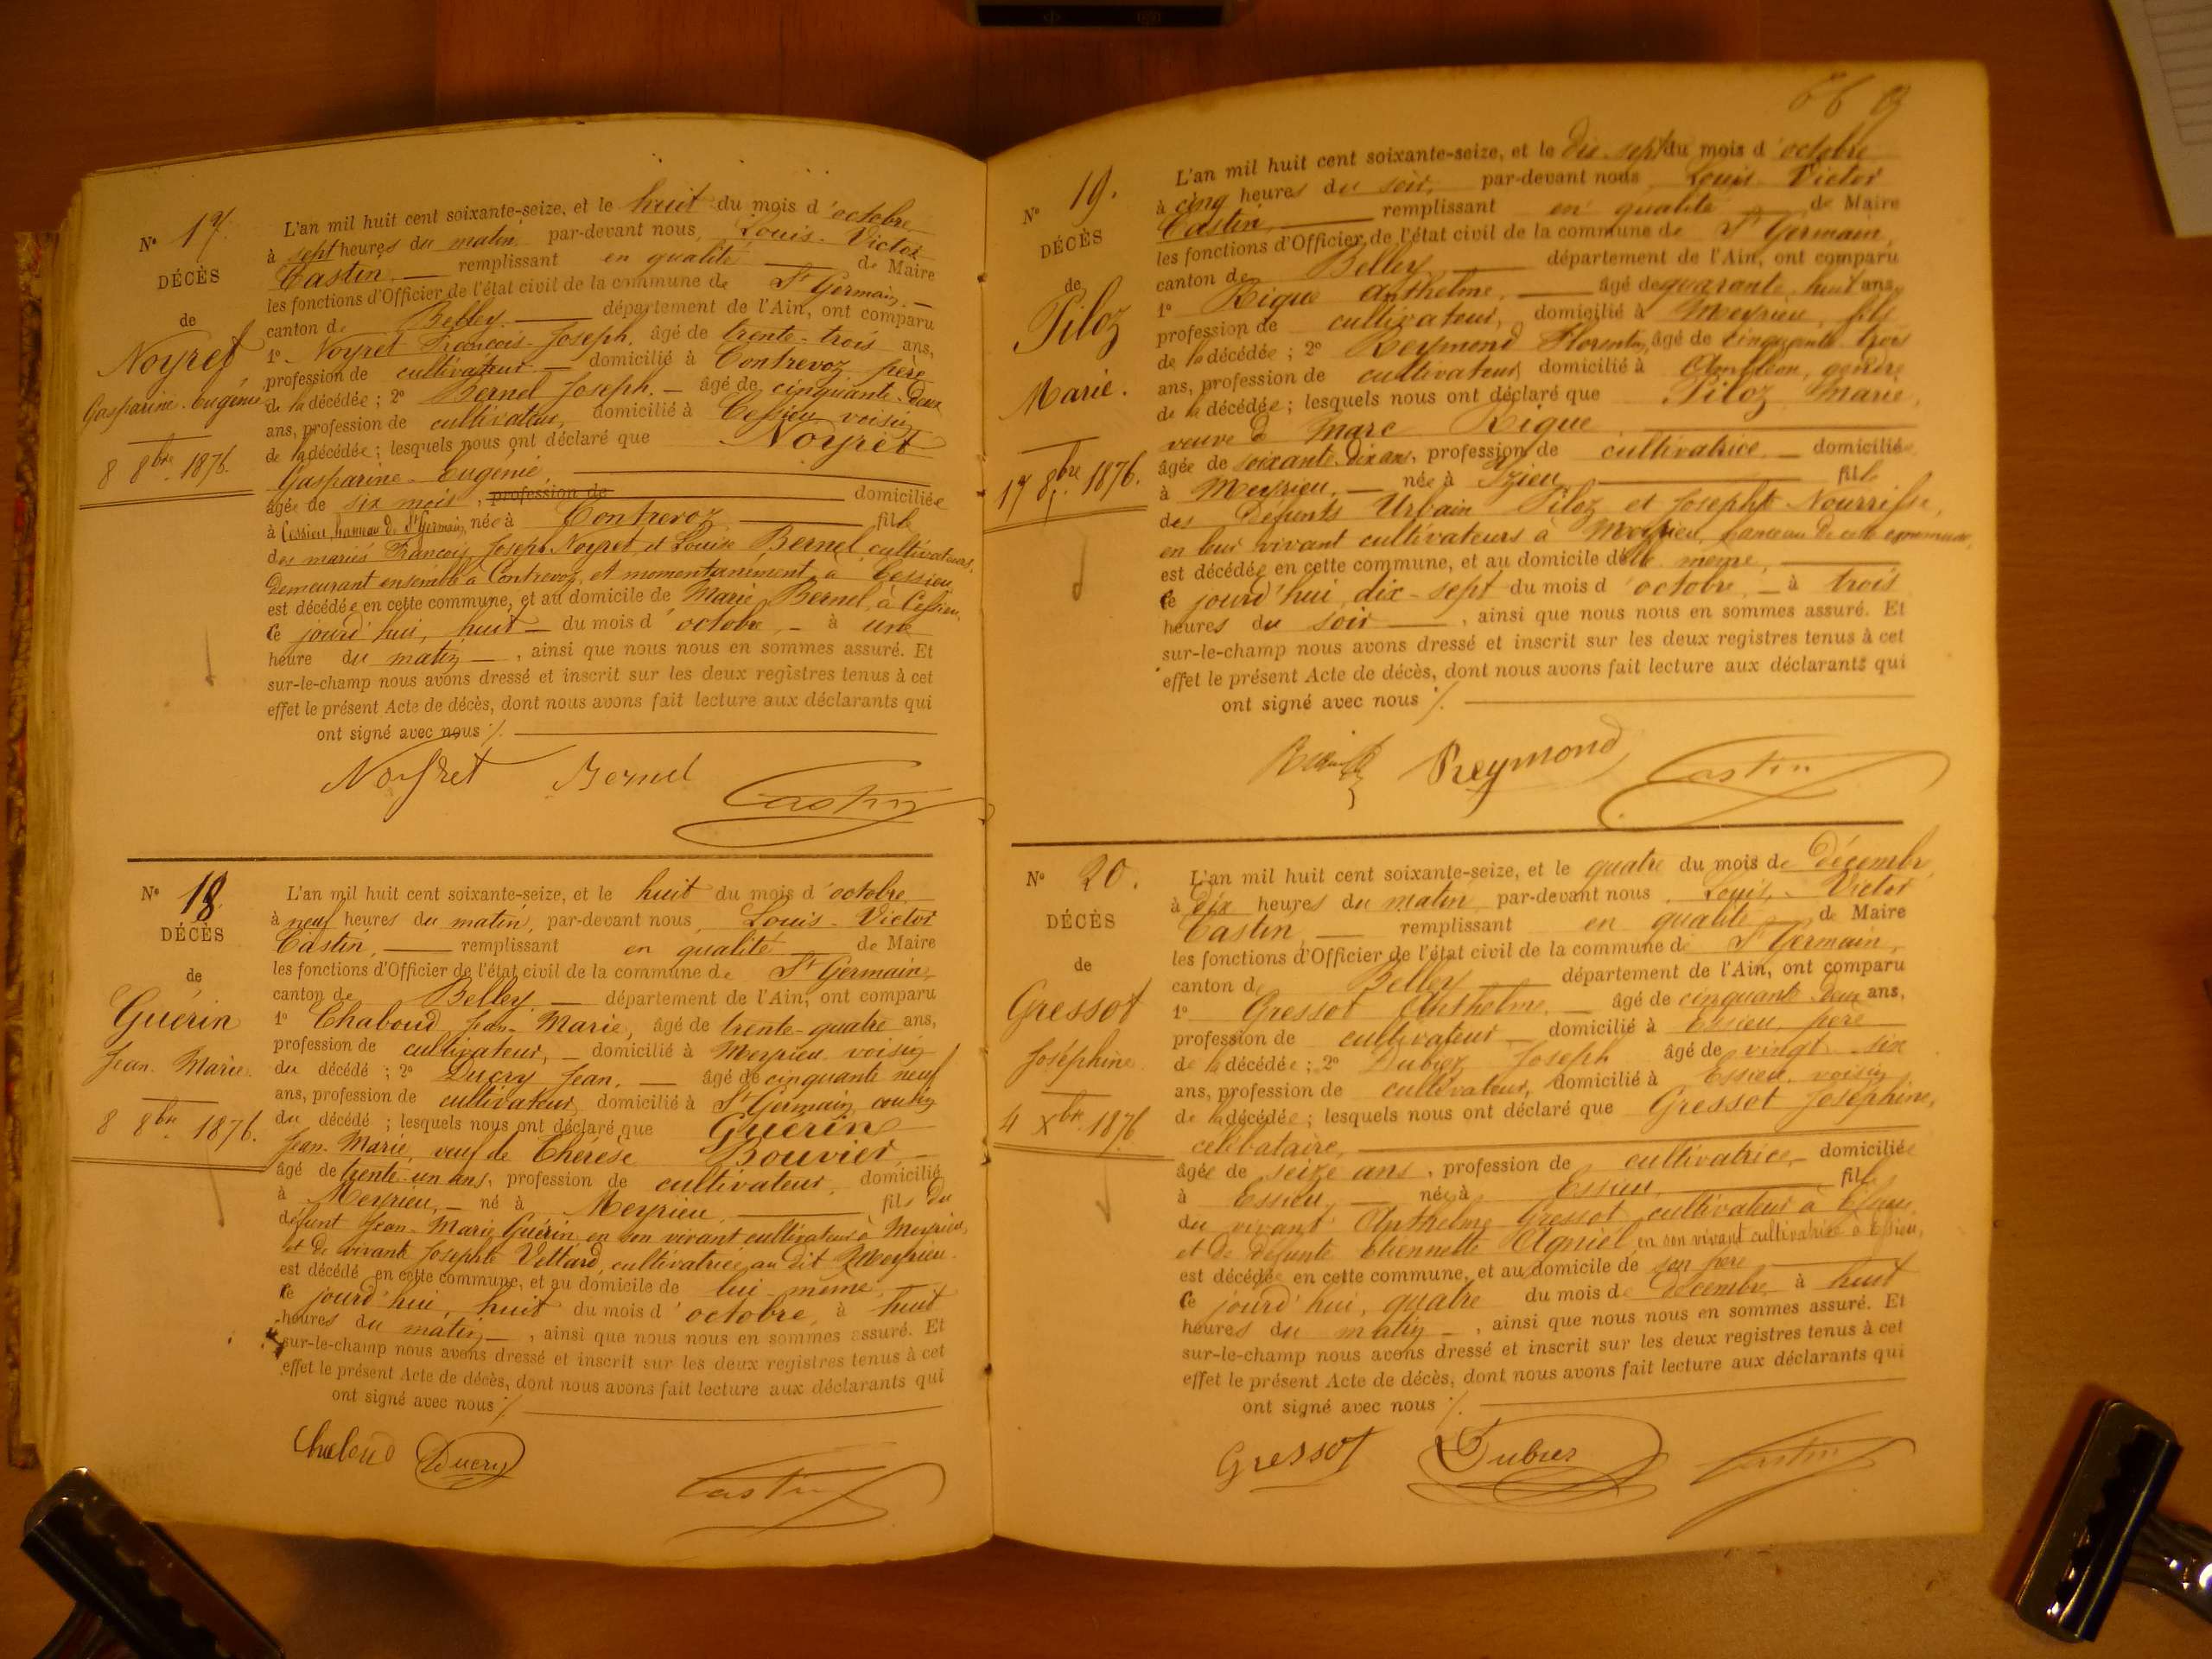 N° 17.
DÉCÈS
de
Noyret
Gasparine-Eugénie
8 8bre 1876.
L'an mil huit cent soixante-seize, et le huit du mois d'octobre
à sept heures du matin, par-devant nous, Louis-Victor
Castin, — remplissant en qualité — de Maire
les fonctions d'Officier de l'état civil de la commune de St Germain, —
canton de Belley — département de l'Ain, ont comparu
1° Noyret François-Joseph, âgé de trente-trois ans,
profession de cultivateur — domicilié à Contrevoz père
de la décédée ; 2° Bernel Joseph. — âgé de cinquante-deux
ans, profession de cultivateur, domicilié à Cessieu voisin
de la décédée ; lesquels nous ont déclaré que Noyret
Gasparine-Eugénie
âgée de six mois, profession de domiciliée
à Cessieu, hameau de St Germain, née à Contrevoz fille
des mariés François Joseph Noyret et Louise Bernel, cultivateurs,
demeurant ensemble à Contrevoz, et momentaniment à Cessieu
est décédée en cette commune, et au domicile de Marie Bernel, à Cessieu,
ce jourd'hui, huit — du mois d'octobre, — à une
heure du matin —, ainsi que nous nous en sommes assuré. Et
sur-le-champ nous avons dressé et inscrit sur les deux registres tenus à cet
effet le présent Acte de décès, dont nous avons fait lecture aux déclarants qui
ont signé avec nous ./.
Noyret Bernel Castin
N° 18.
DÉCÈS
de
Guérin
Jean-Marie.
8 8bre 1876.
L'an mil huit cent soixante-seize, et le huit du mois d'octobre
à neuf heures du matin, par-devant nous, Louis-Victor
Castin, — remplissant en qualité — de Maire
les fonctions d'Officier de l'état civil de la commune de St Germain,
canton de Belley — département de l'Ain, ont comparu
1° Chaboud Jean-Marie, âgé de trente-quatre ans,
profession de cultivateur, — domicilié à Meyrieu voisin
du décédé ; 2° Ducry Jean, — âgé de cinquante neuf
ans, profession de cultivateur, domicilié à St Germain, cousin
du décédé ; lesquels nous ont déclaré que Guérin
Jean-Marie, veuf de Thérèse Bouvier, —
âgé de trente-un ans, profession de cultivateur, domicilié
à Meyrieu, — né à Meyrieu, — fils du
défunt Jean-Marie Guérin, en son vivant cultivateur à Meyrieu,
et de vivante Josephte Vettard, cultivatrice au dit Meyrieu.
est décédé en cette commune, et au domicile de lui-même, —
ce jourd'hui, huit du mois d'octobre, à huit
heures du matin —, ainsi que nous nous en sommes assuré. Et
sur-le-champ nous avons dressé et inscrit sur les deux registres tenus à cet
effet le présent Acte de décès, dont nous avons fait lecture aux déclarants qui
ont signé avec nous ./.
Chaboud Ducry Castin
N° 19.
DÉCÈS
de
Piloz
Marie.
17 8bre 1876.
L'an mil huit cent soixante-seize, et le dix-sept du mois d'octobre
à cinq heures du soir, par-devant nous Louis-Victor
Castin, — remplissant en qualité — de Maire
les fonctions d'Officier de l'état civil de la commune de St Germain,
canton de Belley — département de l'Ain, ont comparu
1° Rique Anthelme, — âgé de quarante-huit ans,
profession de cultivateur, domicilié à Meyrieu, fils
de la décédée ; 2° Reymond Florentin, âgé de cinquante-trois
ans, profession de cultivateur, domicilié à Ambléon, gendre
de la décédée ; lesquels nous ont déclaré que Piloz Marie,
veuve de Marc Rique
âgée de soixante-dix ans, profession de cultivatrice — domiciliée
à Meyrieu, — née à Izieu, — fille
des défunts Urbain Piloz et Josephte Nourrisse,
en leur vivant cultivateurs à Meyrieu, hameau de cette commune,
est décédée en cette commune, et au domicile d'elle-même, —
ce jourd'hui dix-sept du mois d'octobre, — à trois
heures du soir —, ainsi que nous nous en sommes assuré. Et
sur-le-champ nous avons dressé et inscrit sur les deux registres tenus à cet
effet le présent Acte de décès, dont nous avons fait lecture aux déclarants qui
ont signé avec nous ./.
Reymond Castin
N° 20.
DÉCÈS
de
Gressot
Joséphine
4 Xbre 1876
L'an mil huit cent soixante-seize, et le quatre du mois de décembre,
à dix heures du matin, par-devant nous, Louis-Victor
Castin, — remplissant en qualité — de Maire
les fonctions d'Officier de l'état civil de la commune de St Germain,
canton de Belley — département de l'Ain, ont comparu
1° Gressot Anthelme, — âgé de cinquante-deux ans,
profession de cultivateur — domicilié à Essieu, père
de la décédée ; 2° Dubiez Joseph âgé de vingt-six
ans, profession de cultivateur, domicilié à Essieu, voisin
de la décédée ; lesquels nous ont déclaré que Gressot Joséphine,
célibataire, —
âgée de seize ans, profession de cultivatrice — domiciliée
à Essieu, — née à Essieu, — fille
du vivant Anthelme Gressot, cultivateur à Essieu,
et de défunte Etiennette Agniel, en son vivant cultivatrice à Essieu,
est décédée en cette commune, et au domicile de son père —
ce jourd'hui, quatre du mois de décembre, à huit
heures du matin —, ainsi que nous nous en sommes assuré. Et
sur-le-champ nous avons dressé et inscrit sur les deux registres tenus à cet
effet le présent Acte de décès, dont nous avons fait lecture aux déclarants qui
ont signé avec nous ./.
Gressot Dubiez Castin